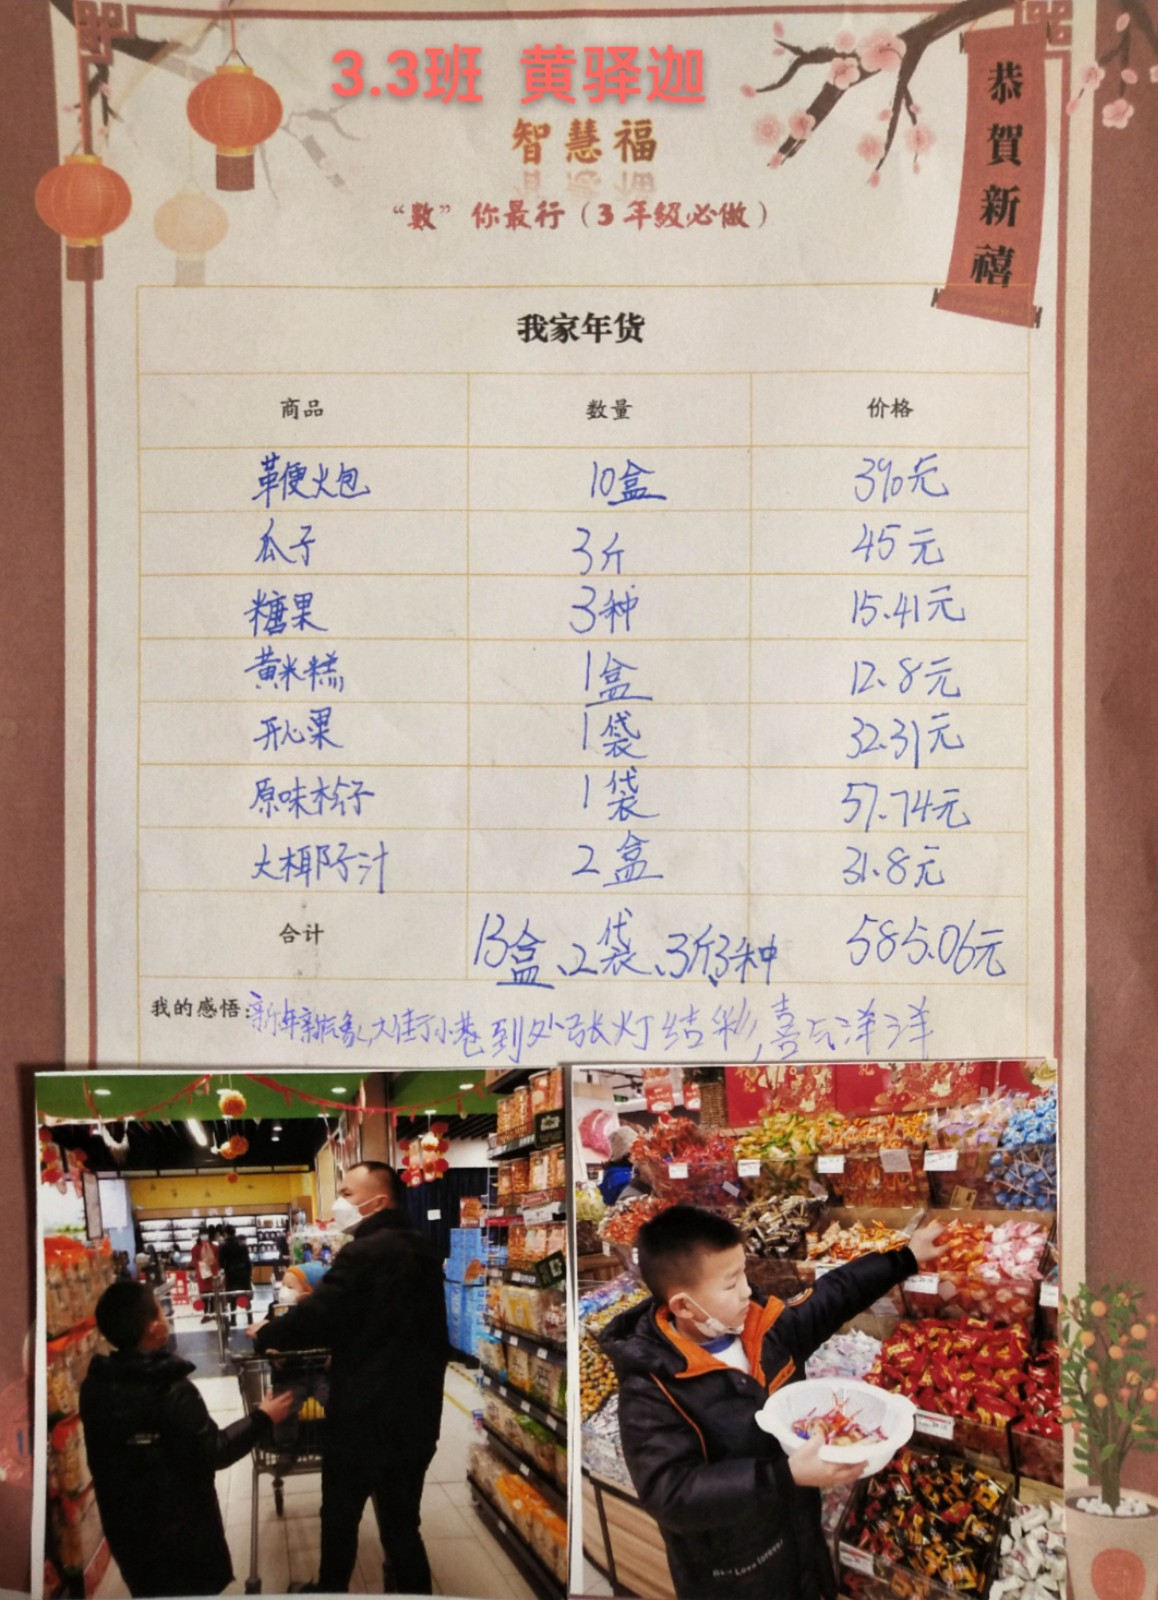 3.3班 黄驿迦
智慧福
“数”你最行（3年级必做）
恭賀新禧
我家年货
商品 数量 价格
鞭火包 10盒 390元
瓜子 3斤 45元
糖果 3种 15.41元
黄米糕 1盒 12.8元
开心果 1袋 32.31元
原味松子 1袋 57.74元
大椰子汁 2盒 31.8元
合计 13盒、2袋、3斤、3种 585.06元
我的感悟：新年新气象，大街小巷到处张灯结彩，喜气洋洋